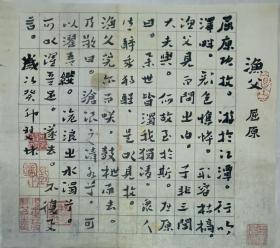 渔父 屈原
屈原既放。游於江潭。行吟
澤畔。顏色憔悴。形容枯槁。
渔父見而問之曰。子非三閭
大夫與。何故至於斯。屈原
曰。舉世皆濁我獨清。眾人
皆醉我獨醒。是以見放。
渔父莞爾而笑。鼓枻而去。
乃歌曰。滄浪之水清兮。可
以濯吾纓。滄浪之水濁兮。
可以濯吾足。遂去。不復與
言。歲次癸卯